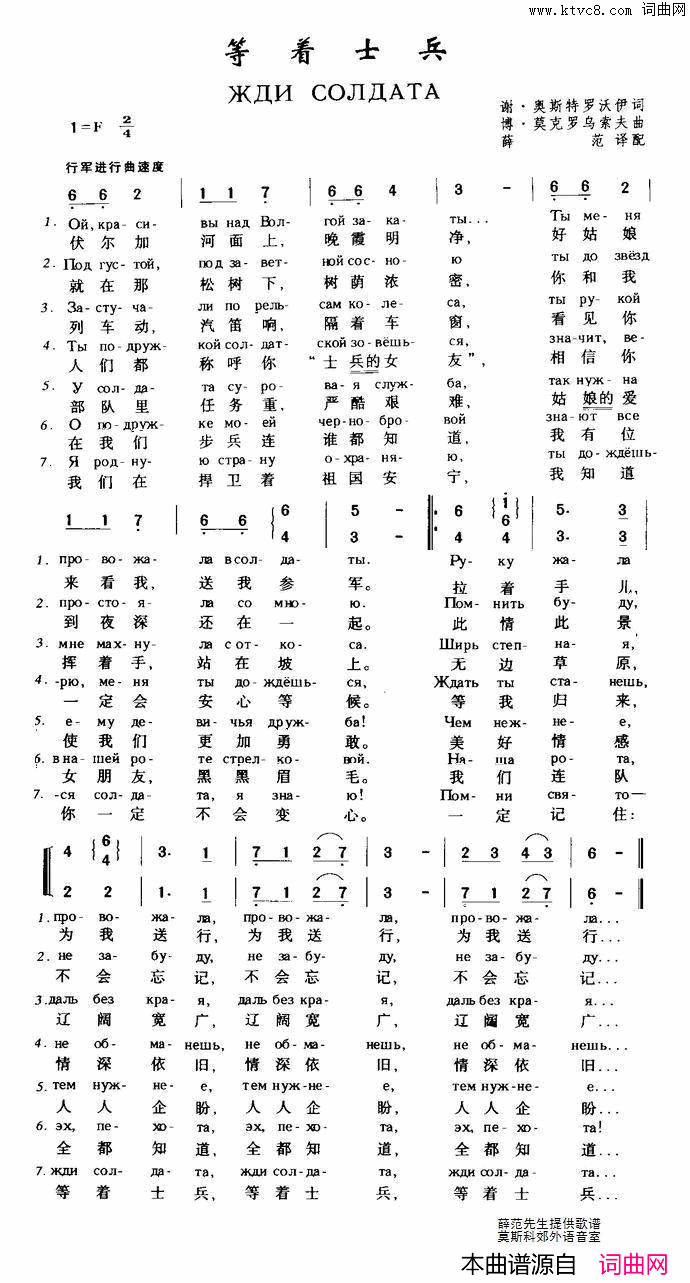 www.ktvc8.com 词曲网
等着士兵
ЖДИ СОЛДАТА
谢·奥斯特罗沃伊词
1=F 2/4
博·莫克罗乌索夫曲
薛 范译配
行军进行曲速度
6 6 2 | 1 1 7 | 6 6 4 | 3 - | 6 6 2 |
1. Ой, кра-си- вы над Вол- гой за-ка- ты... Ты ме-ня
伏尔加 河面上, 晚霞明 净, 好姑娘
2. Под гус-той, под за-вет- ной сос-но- ю ты до звёзд
就在那 松树下, 树荫浓 密, 你和我
3. За-сту-ча- ли по рель- сам ко-ле- са, ты ру-кой
列车动, 汽笛响, 隔着车 窗, 看见你
4. Ты по-друж- кой сол-дат- ской зо-вёшь- ся, зна-чит, ве-
人们都 称呼你 “士兵的女 友”, 相信你
5. У сол-да- та су-ро- ва-я служ- ба, так нуж-на
部队里 任务重, 严酷艰 难, 姑娘的爱
6. О по-друж- ке мо-ей чер-но-бро- вой зна-ют все
在我们 步兵连 谁都知 道, 我有位
7. Я род-ну- ю стра-ну о-хра-ня- ю, ты до-ждёшь-
我们在 捍卫着 祖国安 宁, 我知道
1 1 7 | 6 6 6/4 | 5/3 - | 6/4 1/6/4 | 5./3. 3/3 |
1. про-во-жа- ла в сол-да- ты. Ру-ку жа-ла
来看我, 送我参 军。 拉着手儿,
2. про-сто-я- ла со мно- ю. Пом-нить бу-ду,
到夜深 还在一 起。 此情此景
3. мне мах-ну- ла с от-ко- са. Ширь степ-на-я,
挥着手, 站在坡 上。 无边草原,
4. -рю, ме-ня ты до-ждёшь- ся, Ждать ты ста-нешь,
一定会 安心等 候。 等我归来,
5. е-му де- ви-чья друж- ба! Чем неж-не-е,
使我们 更加勇 敢。 美好情感
6. в на-шей ро- те стрел-ко- вой. На-ша ро-та,
女朋友, 黑黑眉 毛。 我们连队
7. -ся сол-да- та, я зна- ю! Пом-ни свя-то—
你一定 不会变 心。 一定记住:
4 6/4 | 3. 1 | 7 1 2 7 | 3 - | 2 3 4 3 | 6 - ‖
2 2 | 1. 1 | 7 1 2 7 | 3 - | 7 1 2 7 | 6 - ‖
1. про-во-жа-ла, про-во-жа-ла, про-во-жа-ла...
为我送行, 为我送行, 为我送行...
2. не за-бу-ду, не за-бу-ду, не за-бу-ду...
不会忘记, 不会忘记, 不会忘记...
3. даль без кра-я, даль без кра-я, даль без кра-я...
辽阔宽广, 辽阔宽广, 辽阔宽广...
4. не об-ма-нешь, не об-ма-нешь, не об-ма-нешь...
情深依旧, 情深依旧, 情深依旧...
5. тем нуж-не-е, тем нуж-не-е, тем нуж-не-е...
人人企盼, 人人企盼, 人人企盼...
6. эх, пе-хо-та, эх, пе-хо-та, эх, пе-хо-та!
全都知道, 全都知道, 全都知道...
7. жди сол-да-та, жди сол-да-та, жди сол-да-та...
等着士兵, 等着士兵, 等着士兵...
薛范先生提供歌谱
莫斯科郊外语音室
本曲谱源自 词曲网